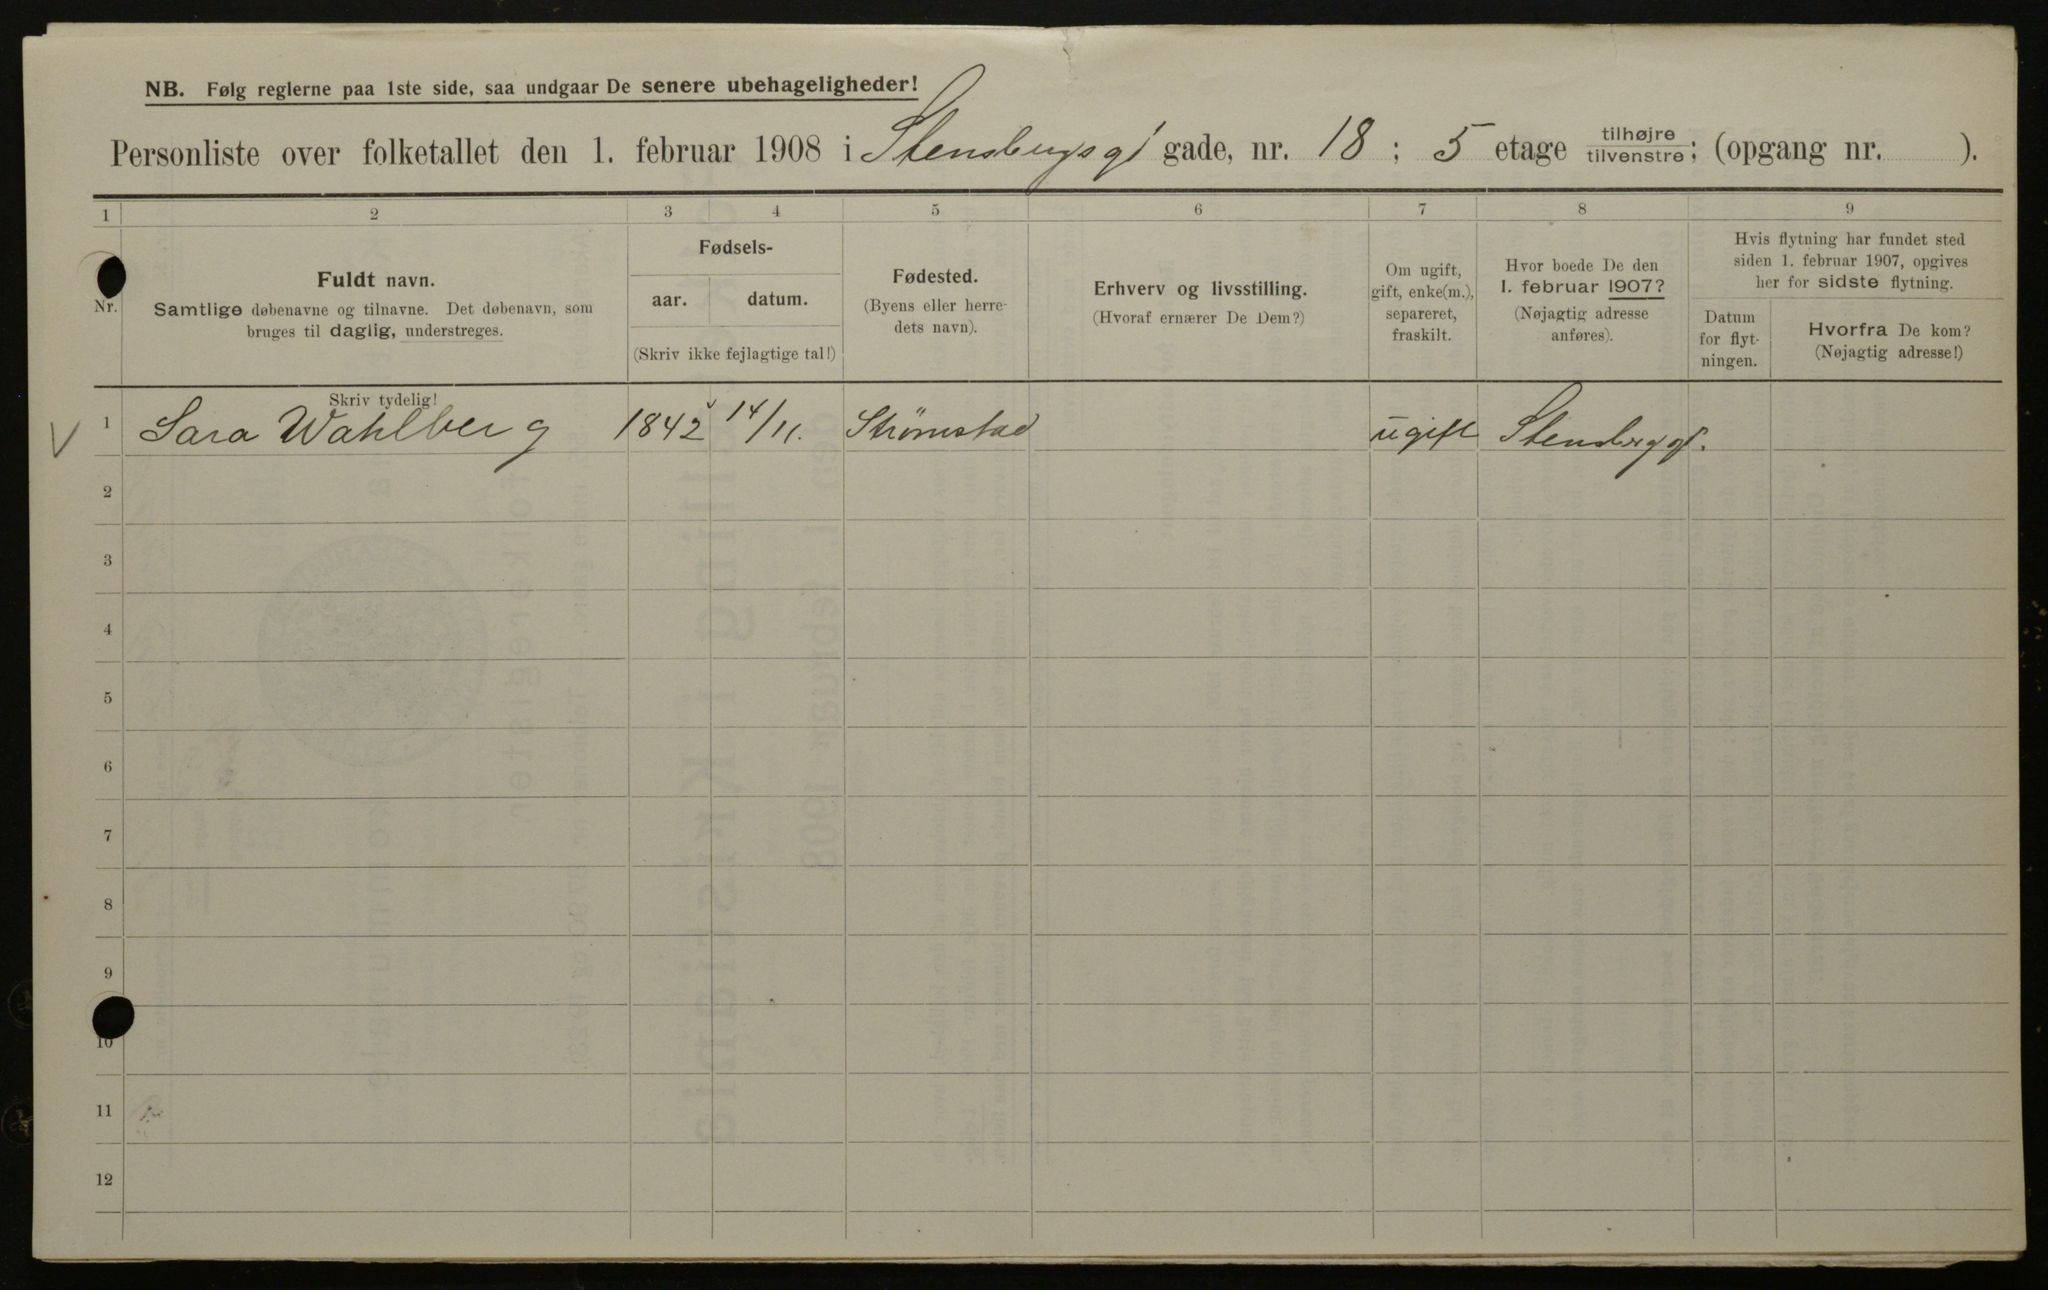 NB. Følg reglerne paa 1ste side, saa undgaar De senere ubehageligheder!
Personliste over folketallet den 1. februar 1908 i Stensbergsgt gade, nr. 18 ; 5 etage tilhøjre/tilvenstre; (opgang nr. ).
1 2 3 4 5 6 7 8 9
Nr.
Fuldt navn.
Samtlige døbenavne og tilnavne. Det døbenavn, som
bruges til daglig, understreges.
Fødsels-
aar. datum.
(Skriv ikke fejlagtige tal!)
Fødested.
(Byens eller herre-
dets navn).
Erhverv og livsstilling.
(Hvoraf ernærer De Dem?)
Om ugift,
gift, enke(m.),
separeret,
fraskilt.
Hvor boede De den
1. februar 1907?
(Nøjagtig adresse
anføres).
Hvis flytning har fundet sted
siden 1. februar 1907, opgives
her for sidste flytning.
Datum
for flyt-
ningen.
Hvorfra De kom?
(Nøjagtig adresse!)
Skriv tydelig!
V 1 Sara Wahlberg 1842 14/11. Strömstad ugift Stensberggt.
2
3
4
5
6
7
8
9
10
11
12